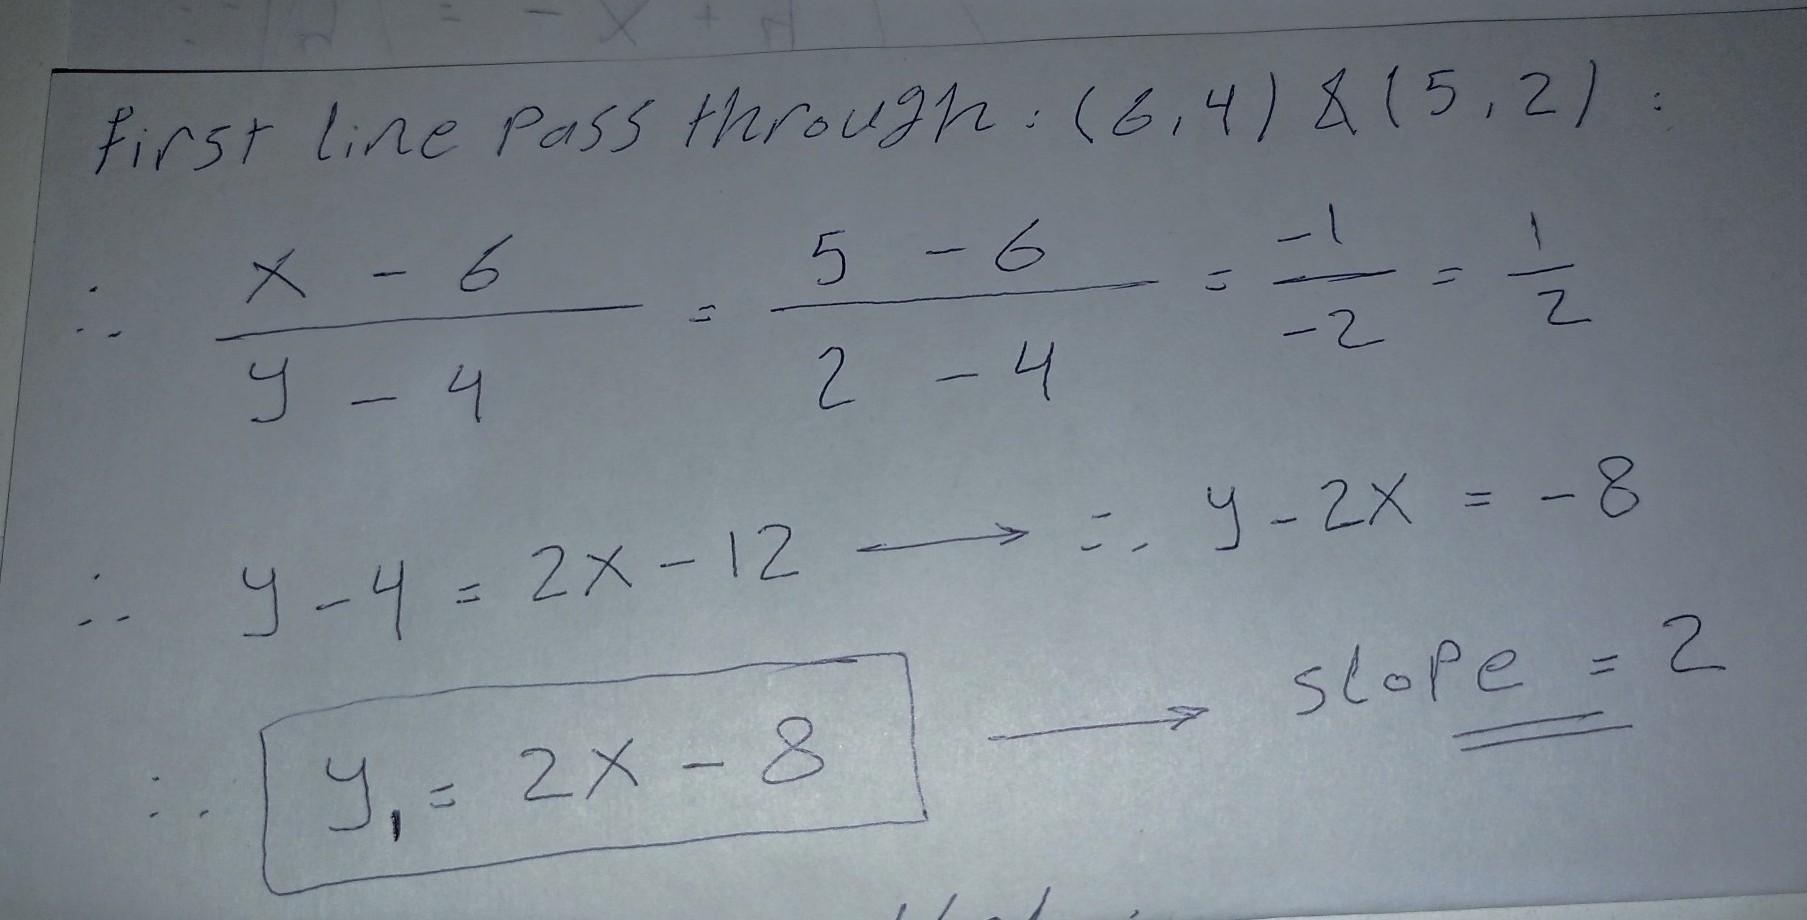 first line pass through: (6,4) & (5,2):
∴ x - 6 / y - 4 = 5 - 6 / 2 - 4 = -1 / -2 = 1 / 2
∴ y - 4 = 2x - 12 → ∴ y - 2x = -8
∴ y₁ = 2x - 8 → slope = 2